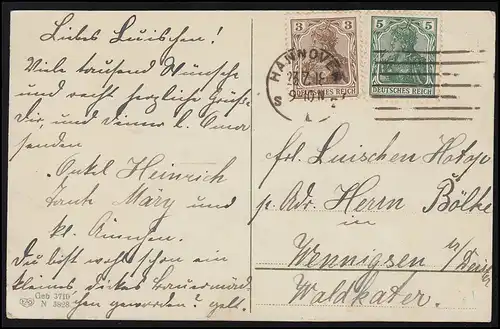 Liebes Luischen!
Viele tausend Wünsche
und recht herzliche Grüße
Dir, und Deiner l. Oma
senden
Onkel Heinrich
Tante Märy und
kl. Ännchen.
Du bist wohl schon ein
kleines dickes Bauernmäd-
chen geworden? gelt.
Geb 3710
N 3828
3 3
DEUTSCHES REICH
5 5
DEUTSCHES REICH
HANNOVER
9-10 N
S
Frl. Luischen
p. Adr. Herrn Bölke
in
Wennigsen a/Deister
Waldkater.